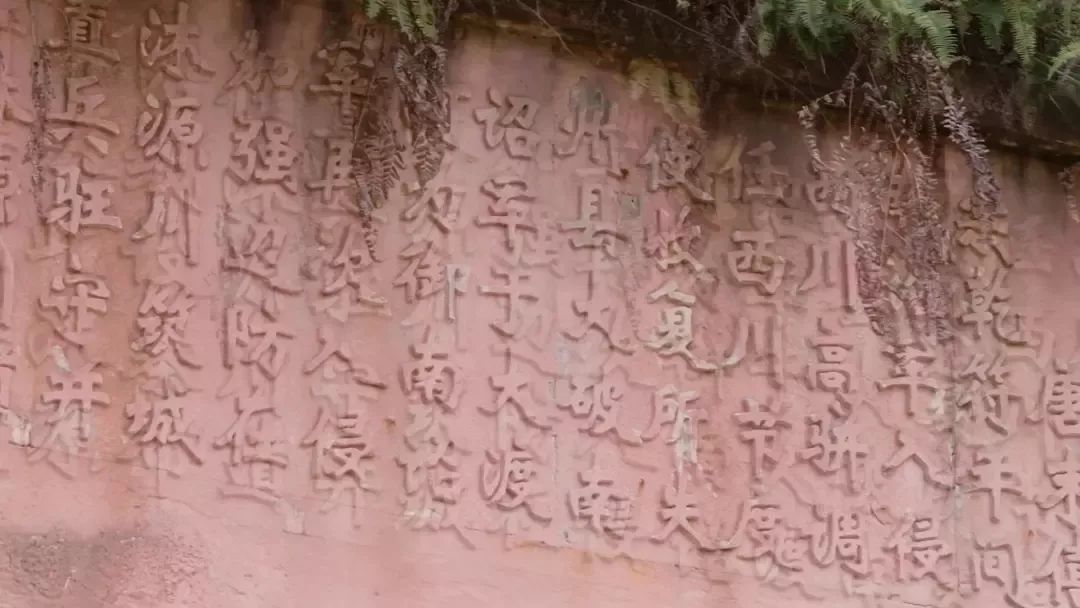 唐末僖
宗乾符年间
军入侵
西川高骈调
任西川节度
使收复所失
州县大破南
诏军于大渡
为御南诏
军再次入侵
加强边防在
沐源川筑城
置兵驻守并